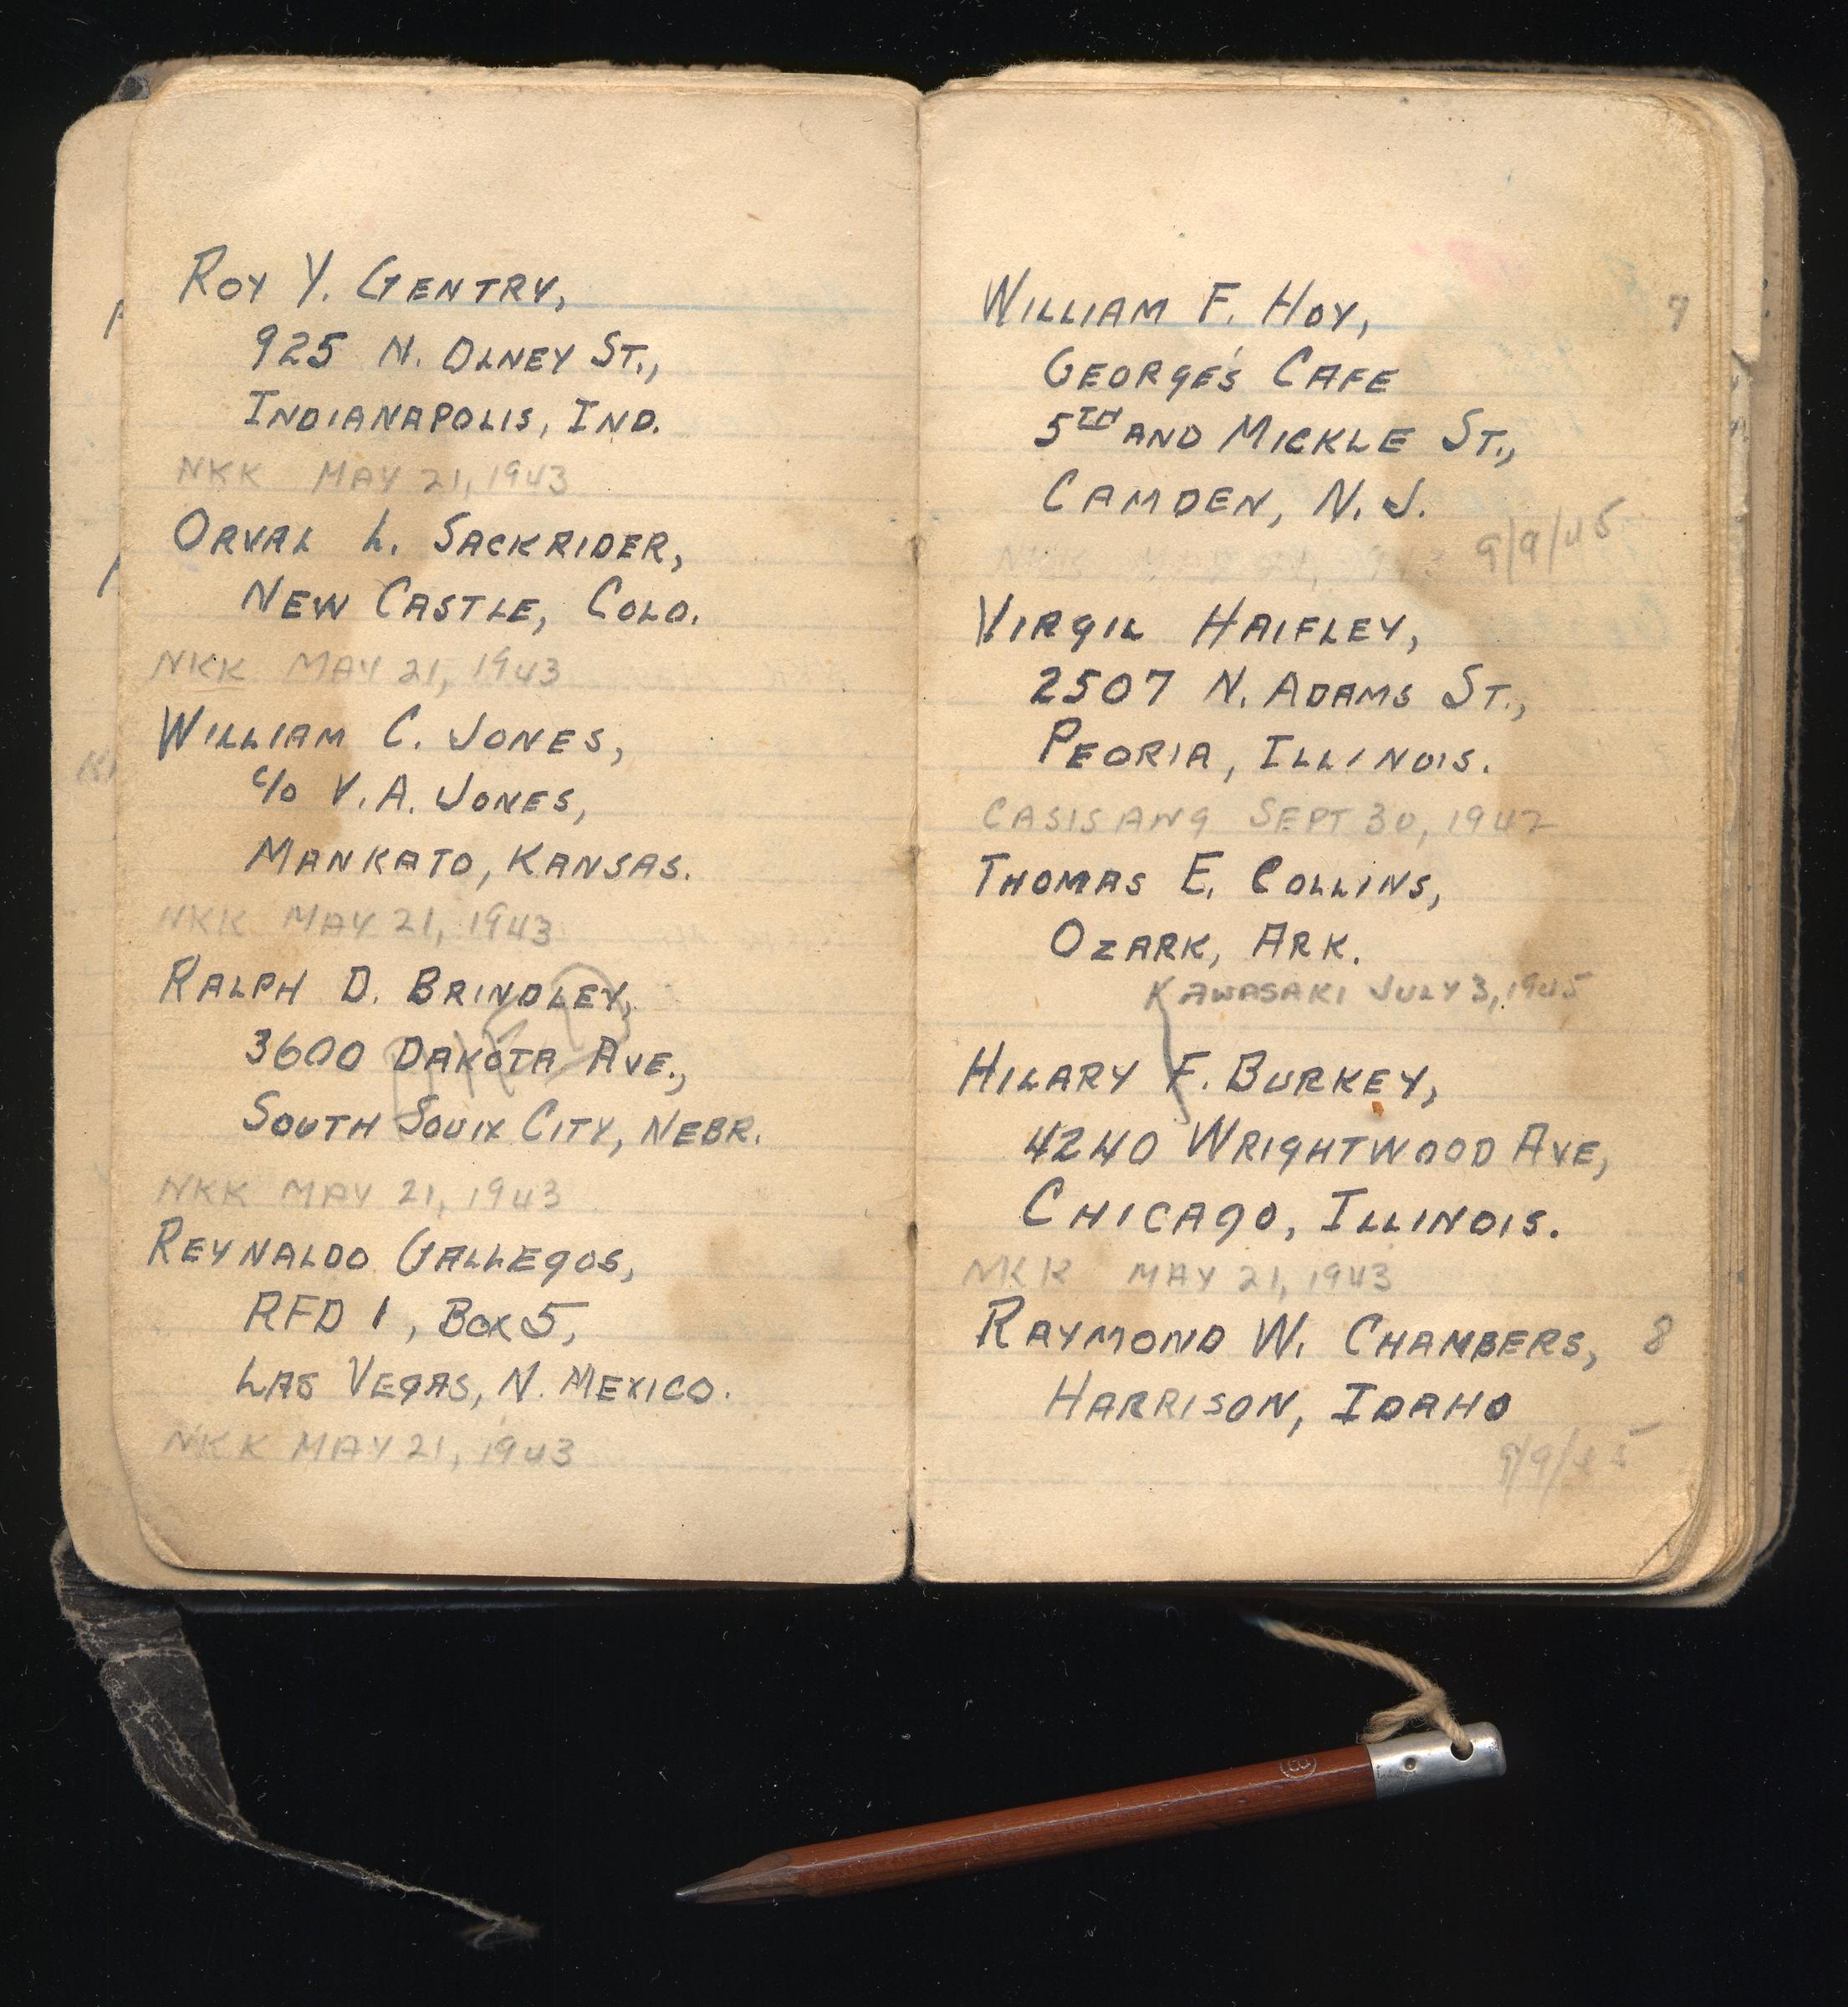 Roy Y. Gentry,
925 N. Olney St.,
Indianapolis, Ind.
NKK May 21, 1943
Orval L. Sackrider,
New Castle, Colo.
NKK May 21, 1943
William C. Jones,
c/o V. A. Jones,
Mankato, Kansas.
NKK May 21, 1943
Ralph D. Brindley,
3600 Dakota Ave.,
South Souix City, Nebr.
NKK May 21, 1943
Reynaldo Gallegos,
RFD 1, Box 5,
Las Vegas, N. Mexico.
NKK May 21, 1943
William F. Hoy, 7
George's Cafe
5th and Mickle St.,
Camden, N. J.
9/9/45
Virgil Haifley,
2507 N. Adams St.,
Peoria, Illinois.
Casisang Sept 30, 1942
Thomas E. Collins,
Ozark, Ark.
Kawasaki July 3, 1945
Hilary F. Burkey,
4240 Wrightwood Ave,
Chicago, Illinois.
NKK May 21, 1943
Raymond W. Chambers, 8
Harrison, Idaho
9/9/45